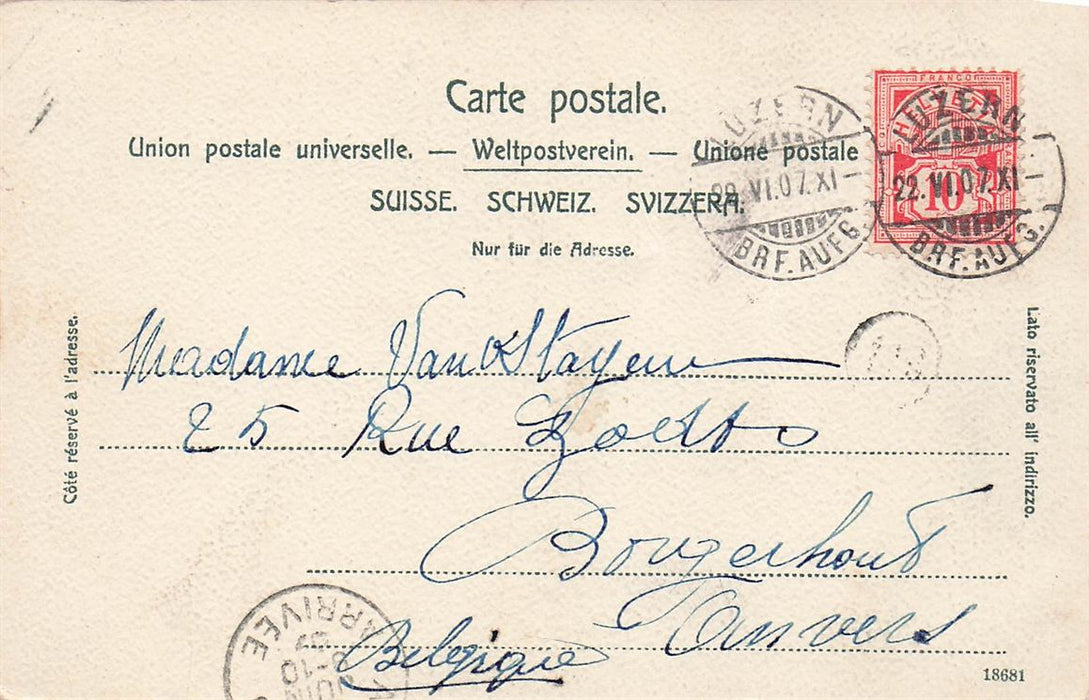 Carte postale.
Union postale universelle. — Weltpostverein. — Unione postale
SUISSE. SCHWEIZ. SVIZZERA.
Nur für die Adresse.
FRANCO
HELVETIA
10
LUZERN
22.VI.07.XI
BRF.AUFG.
LUZERN
22.VI.07.XI—
BRF.AUFG.
Côté réservé à l'adresse.
Lato riservato all' indirizzo.
Madame
25 Rue
Borgerhout
Anvers
Belgique
ARRIVÉE
07
8-10
JUIN
18681